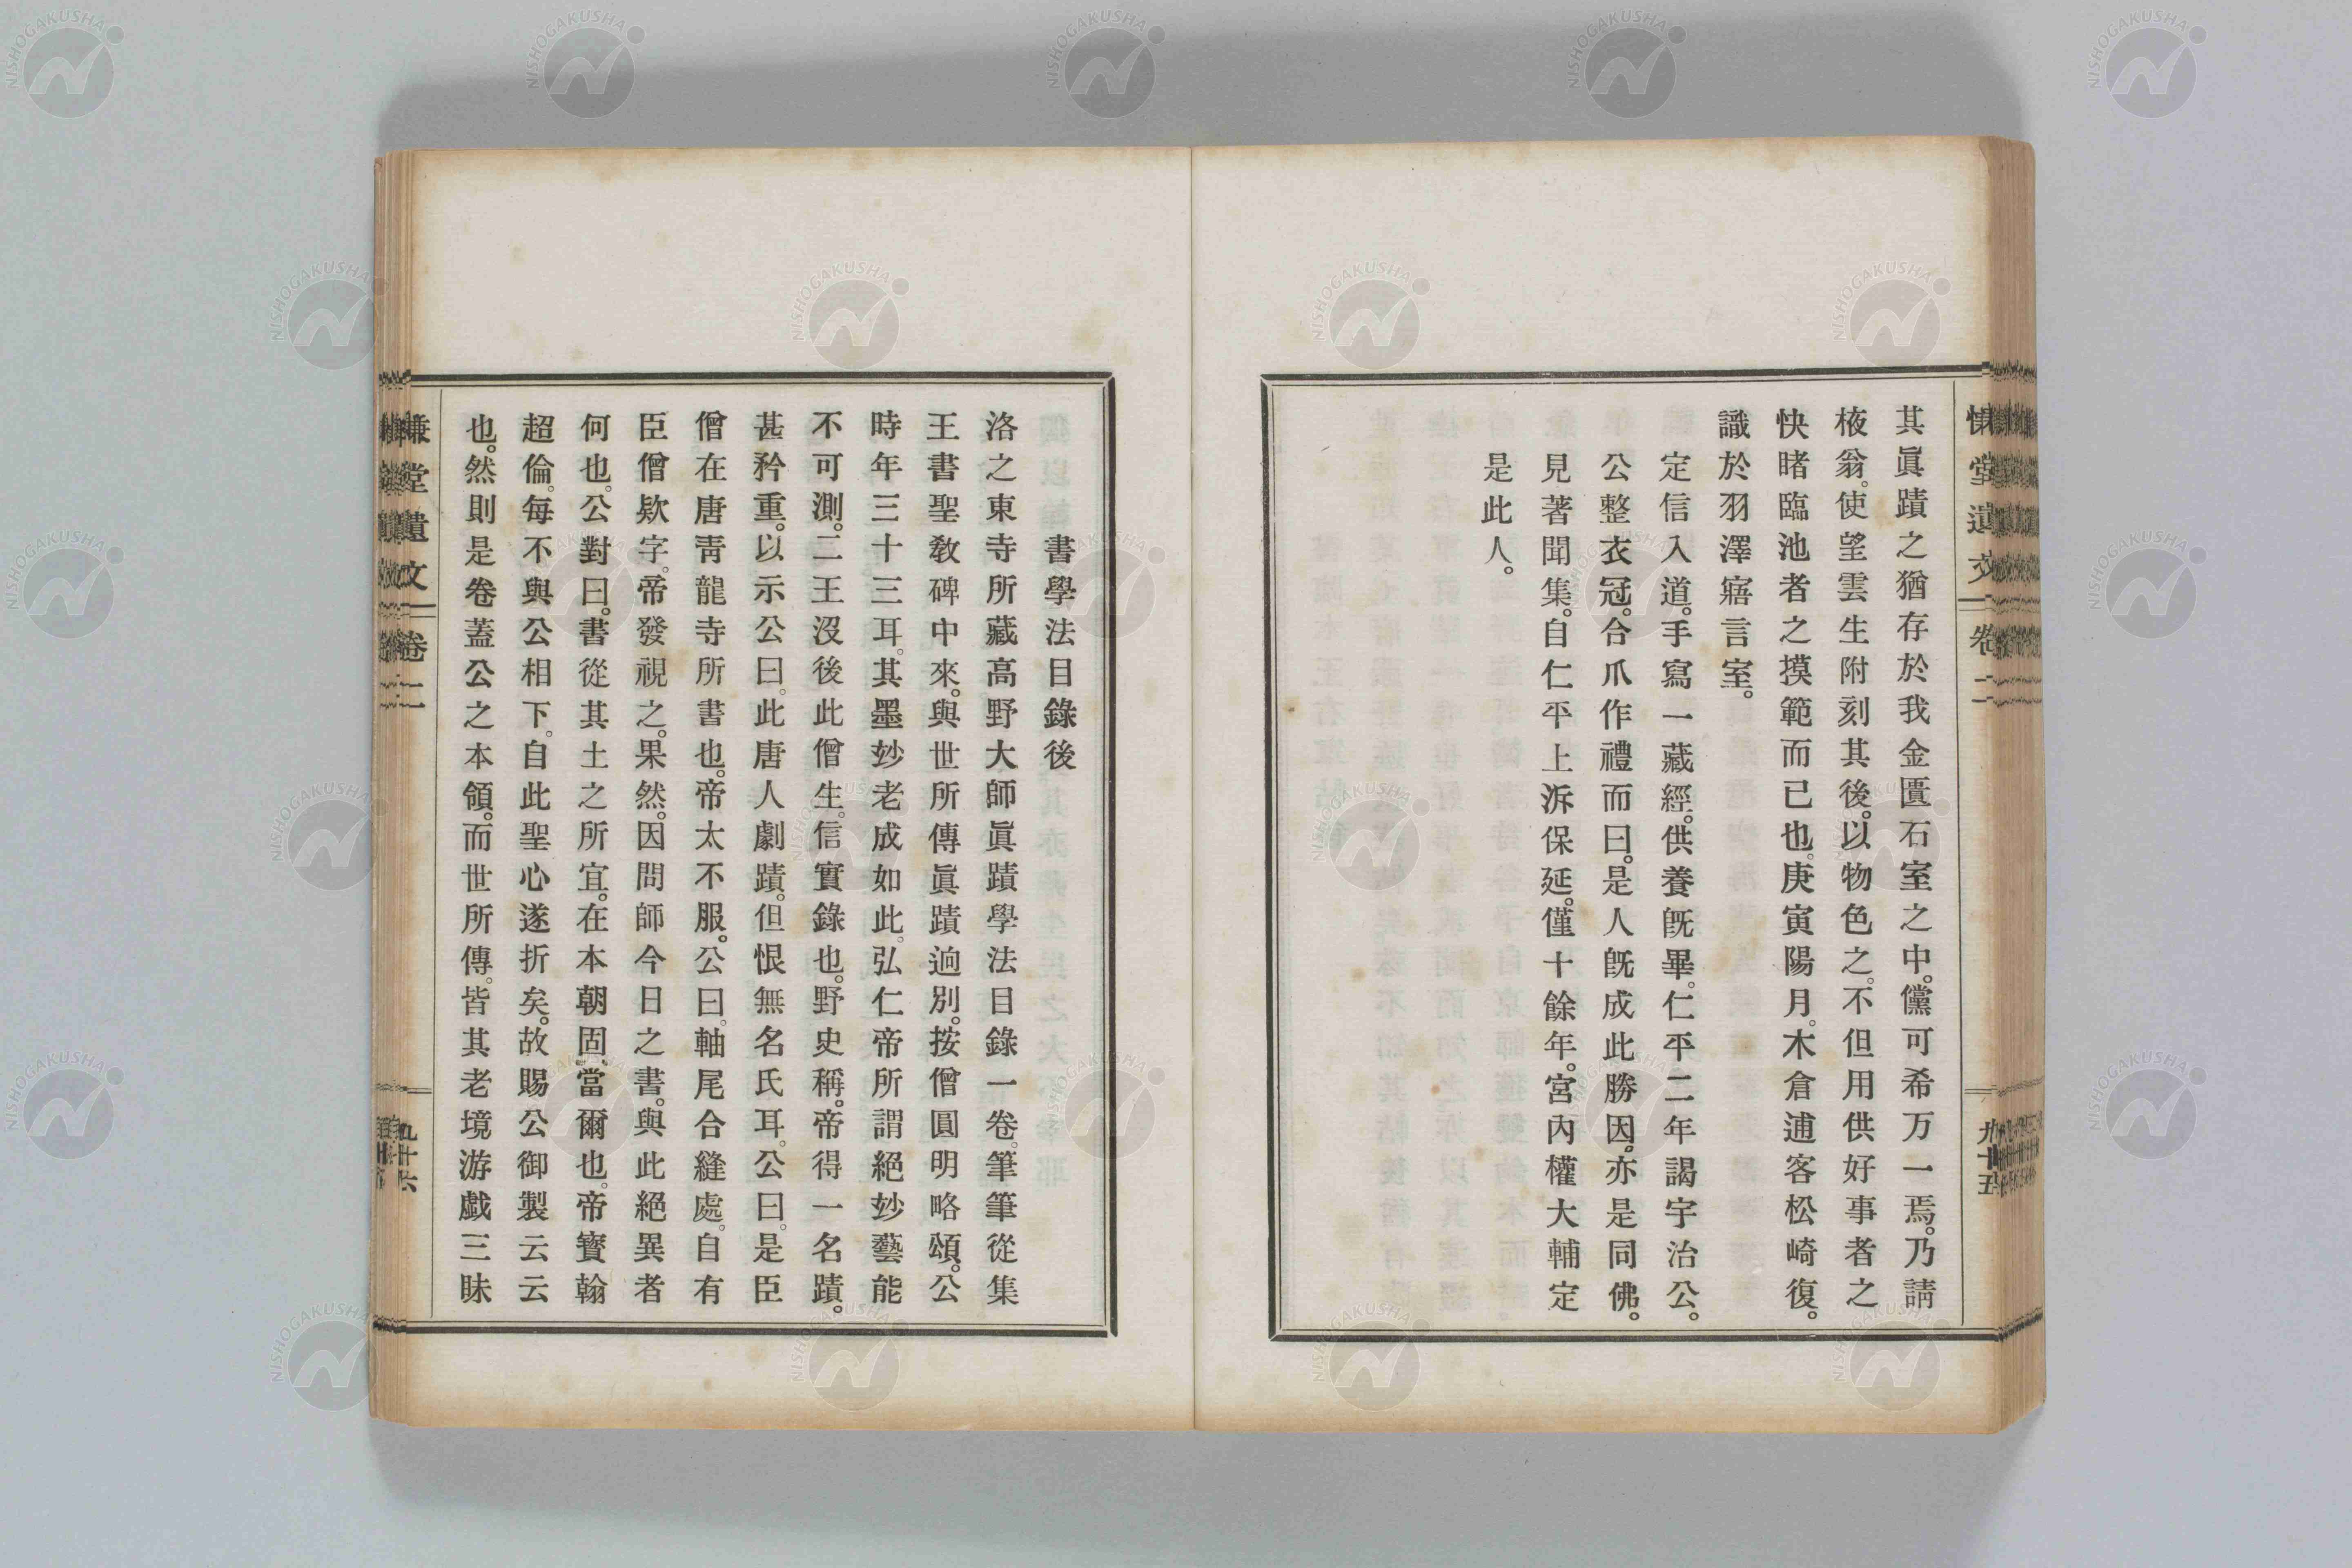 其眞蹟之猶存於我金匱石室之中。儻可希万一焉。乃請
棭翁。使望雲生附刻其後。以物色之。不但用供好事者之
快睹臨池者之摸範而已也。庚寅陽月。木倉逋客松崎復。
識於羽澤寤言室。
定信入道。手寫一藏經。供養旣畢。仁平二年謁宇治公。
公整衣冠。合爪作禮而曰。是人旣成此勝因。亦是同佛。
見著聞集。自仁平上泝保延。僅十餘年。宮內權大輔定
是此人。
慊堂遺文 卷二 九十五
書學法目錄後
洛之東寺所藏高野大師眞蹟學法目錄一卷。筆筆從集
王書聖敎碑中來。與世所傳眞蹟逈別。按僧圓明略頌。公
時年三十三耳。其墨妙老成如此。弘仁帝所謂絕妙藝能
不可測。二王沒後此僧生。信實錄也。野史稱。帝得一名蹟。
甚矜重。以示公曰。此唐人劇蹟。但恨無名氏耳。公曰。是臣
僧在唐靑龍寺所書也。帝太不服。公曰。軸尾合縫處。自有
臣僧欵字。帝發視之。果然。因問師今日之書。與此絕異者
何也。公對曰。書從其土之所宜。在本朝固當爾也。帝寶翰
超倫。每不與公相下。自此聖心遂折矣。故賜公御製云云
也。然則是卷蓋公之本領。而世所傳。皆其老境游戲三昧
慊堂遺文 卷二 九十六
NISHOGAKUSHA